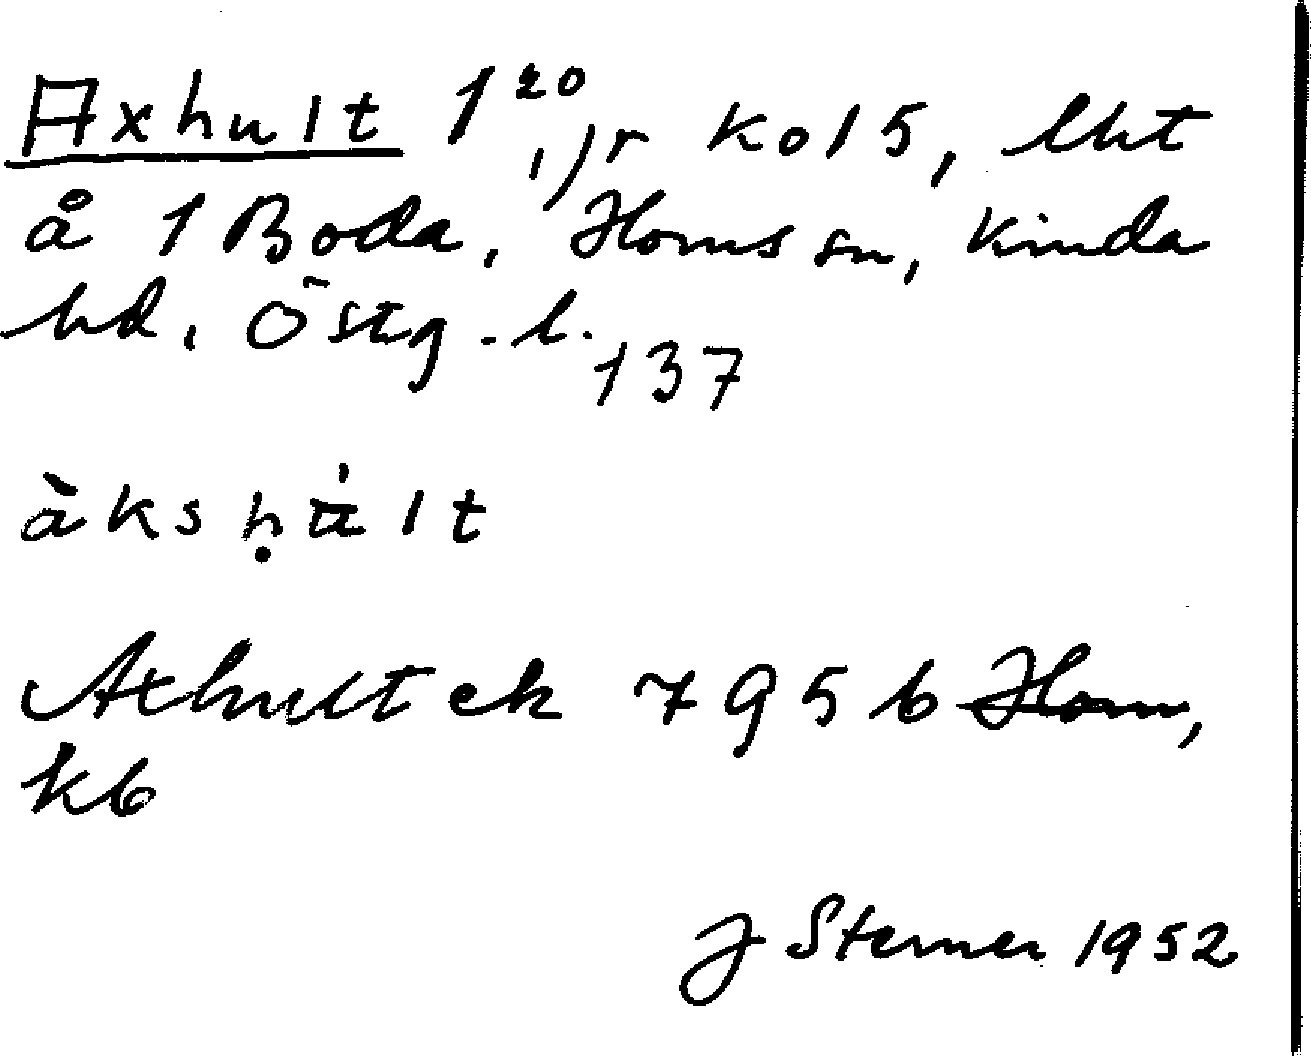 Axhult 1²⁰,) r Ko 15, lht
å 1 Boda, Horns sn, Kinda
hd, Östg.-l.
137
àksḥu̇lt
Axhult ek 7956 Horn,
kb
J Sterner 1952